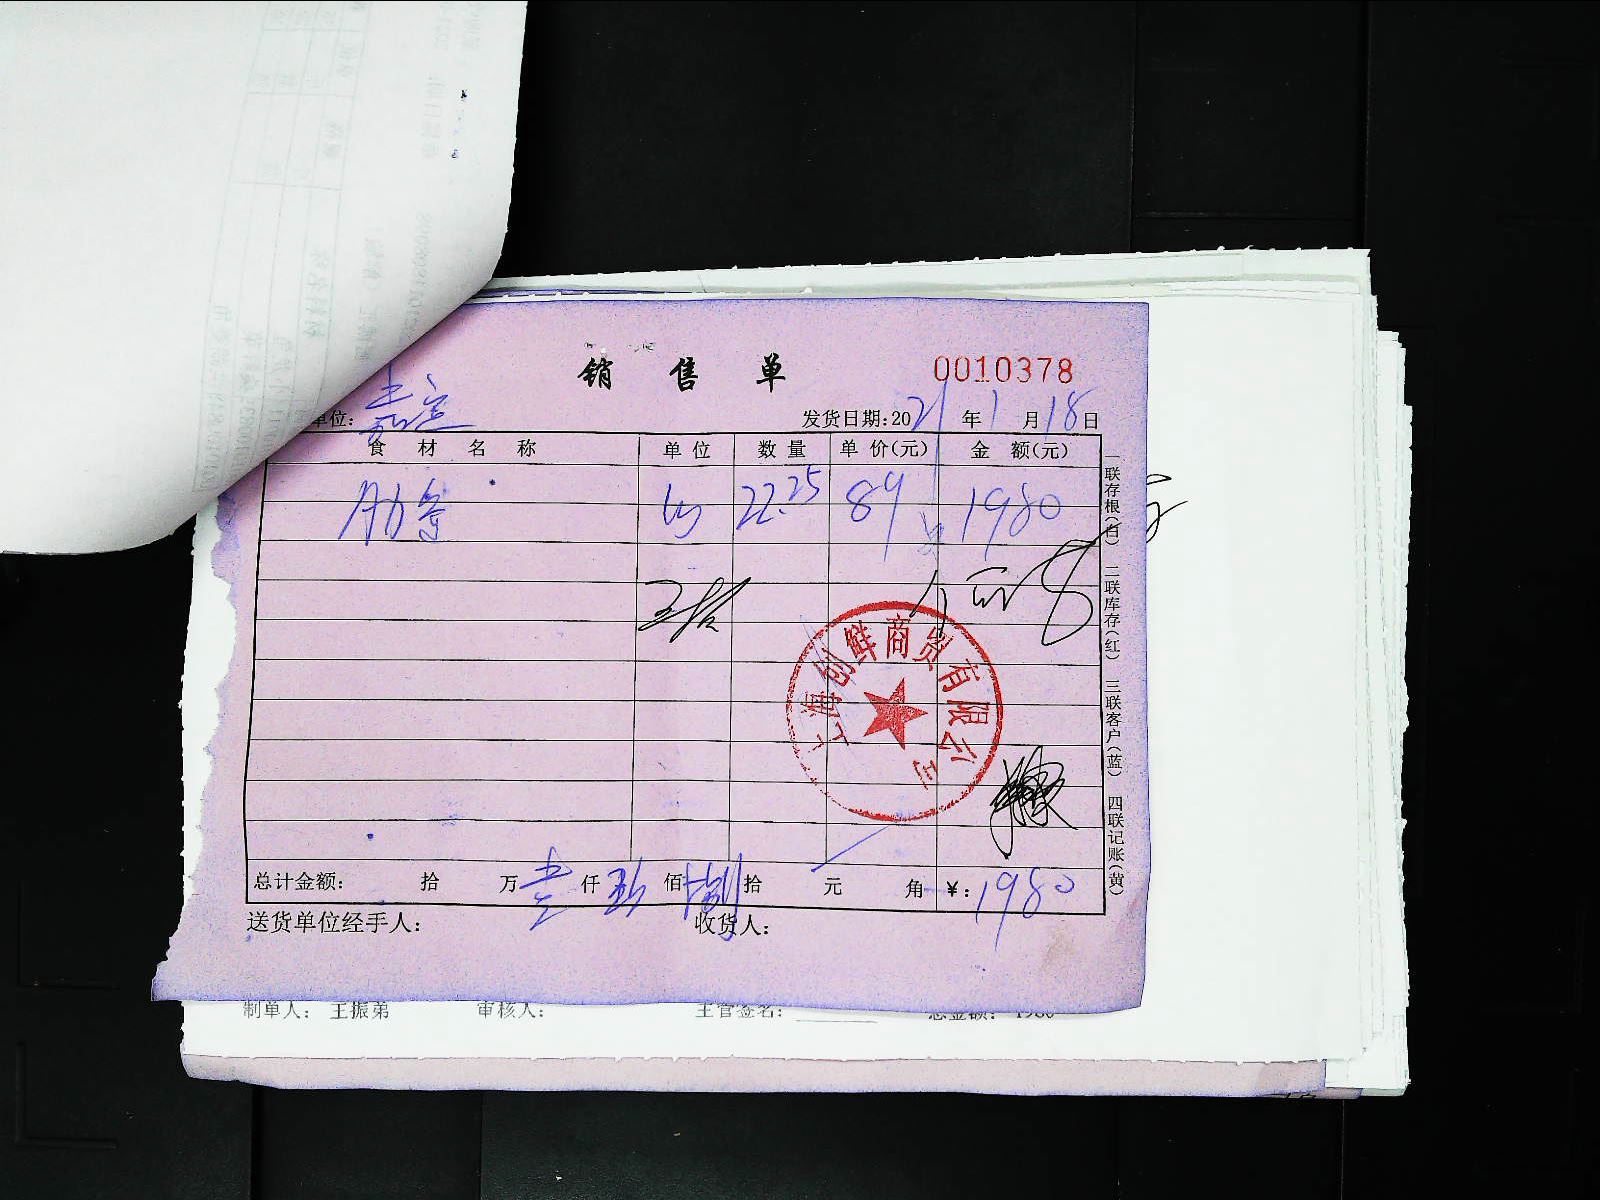 销售单
0010378
单位: 嘉定
发货日期:2021年1月18日
食材名称 单位 数量 单价(元) 金额(元)
肋条 22.25 89 1980
上海创鲜商贸有限公司
总计金额: 拾 万壹仟玖佰捌拾 元 角 ¥:1980
送货单位经手人: 收货人:
一联存根(白) 二联库存(红) 三联客户(蓝) 四联记账(黄)
制单人: 王振弟 审核人: 主管签名: 总金额: 1980